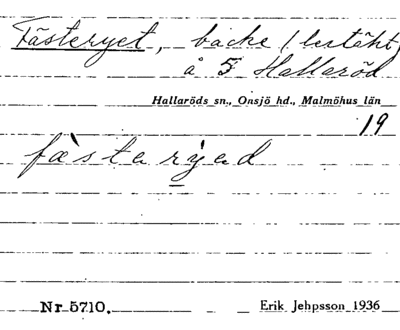 Fästeryet, backe (lertäkt)
å 5 Hallaröd
Hallaröds sn., Onsjö hd., Malmöhus län
19
fæ̀starýad
Nr 5710.
Erik Jehpsson 1936